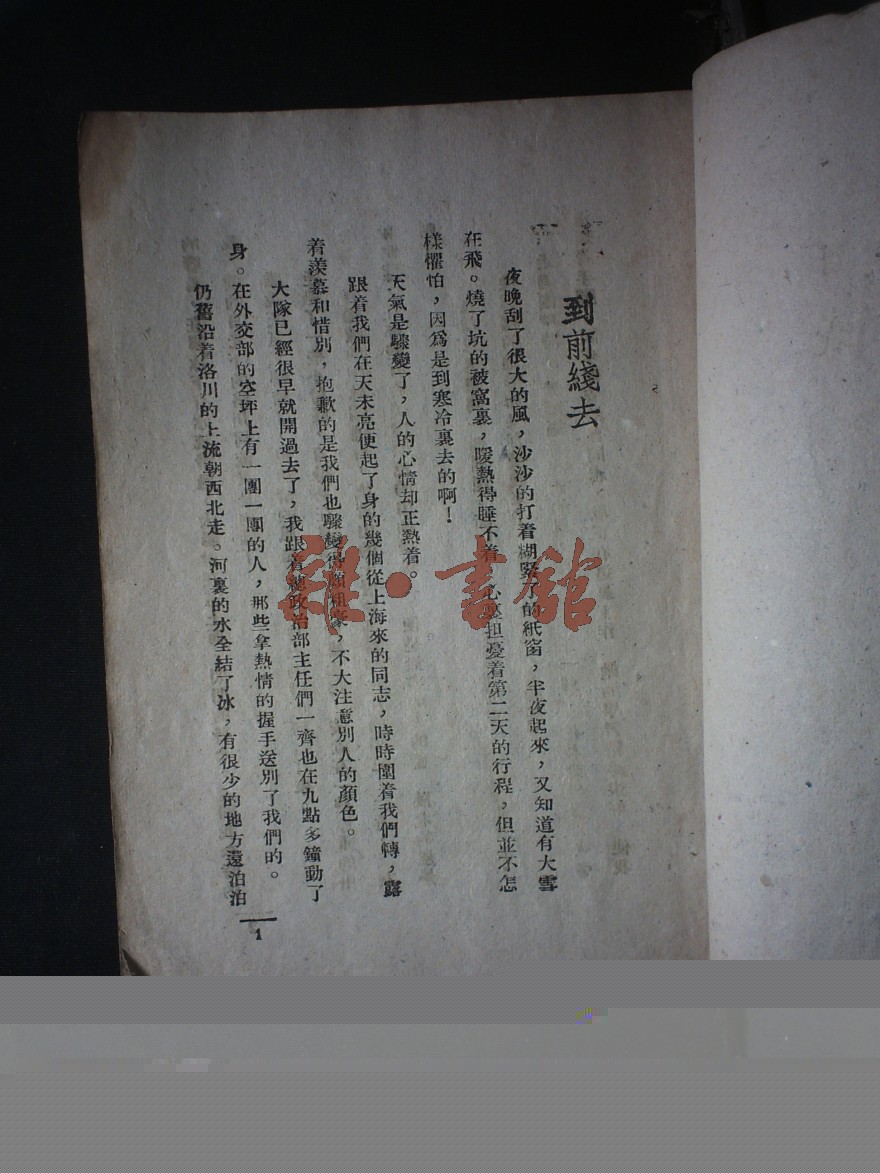 到前綫去
夜晚刮了很大的風，沙沙的打着糊緊了的紙窗，半夜起來，又知道有大雪
在飛。燒了坑的被窩裏，暖熱得睡不着，心裏担憂着第二天的行程，但並不怎
樣懼怕，因爲是到寒冷裏去的啊！
天氣是驟變了，人的心情却正熱着。
跟着我們在天未亮便起了身的幾個從上海來的同志，時時圍着我們轉，露
着羡慕和惜別，抱歉的是我們也驟變得頗粗豪，不大注意別人的顏色。
大隊已經很早就開過去了，我跟着總政治部主任們一齊也在九點多鐘動了
身。在外交部的空坪上有一團一團的人，那些拿熱情的握手送別了我們的。
仍舊沿着洛川的上流朝西北走。河裏的水全結了冰，有很少的地方還泊泊
1
雜·書館